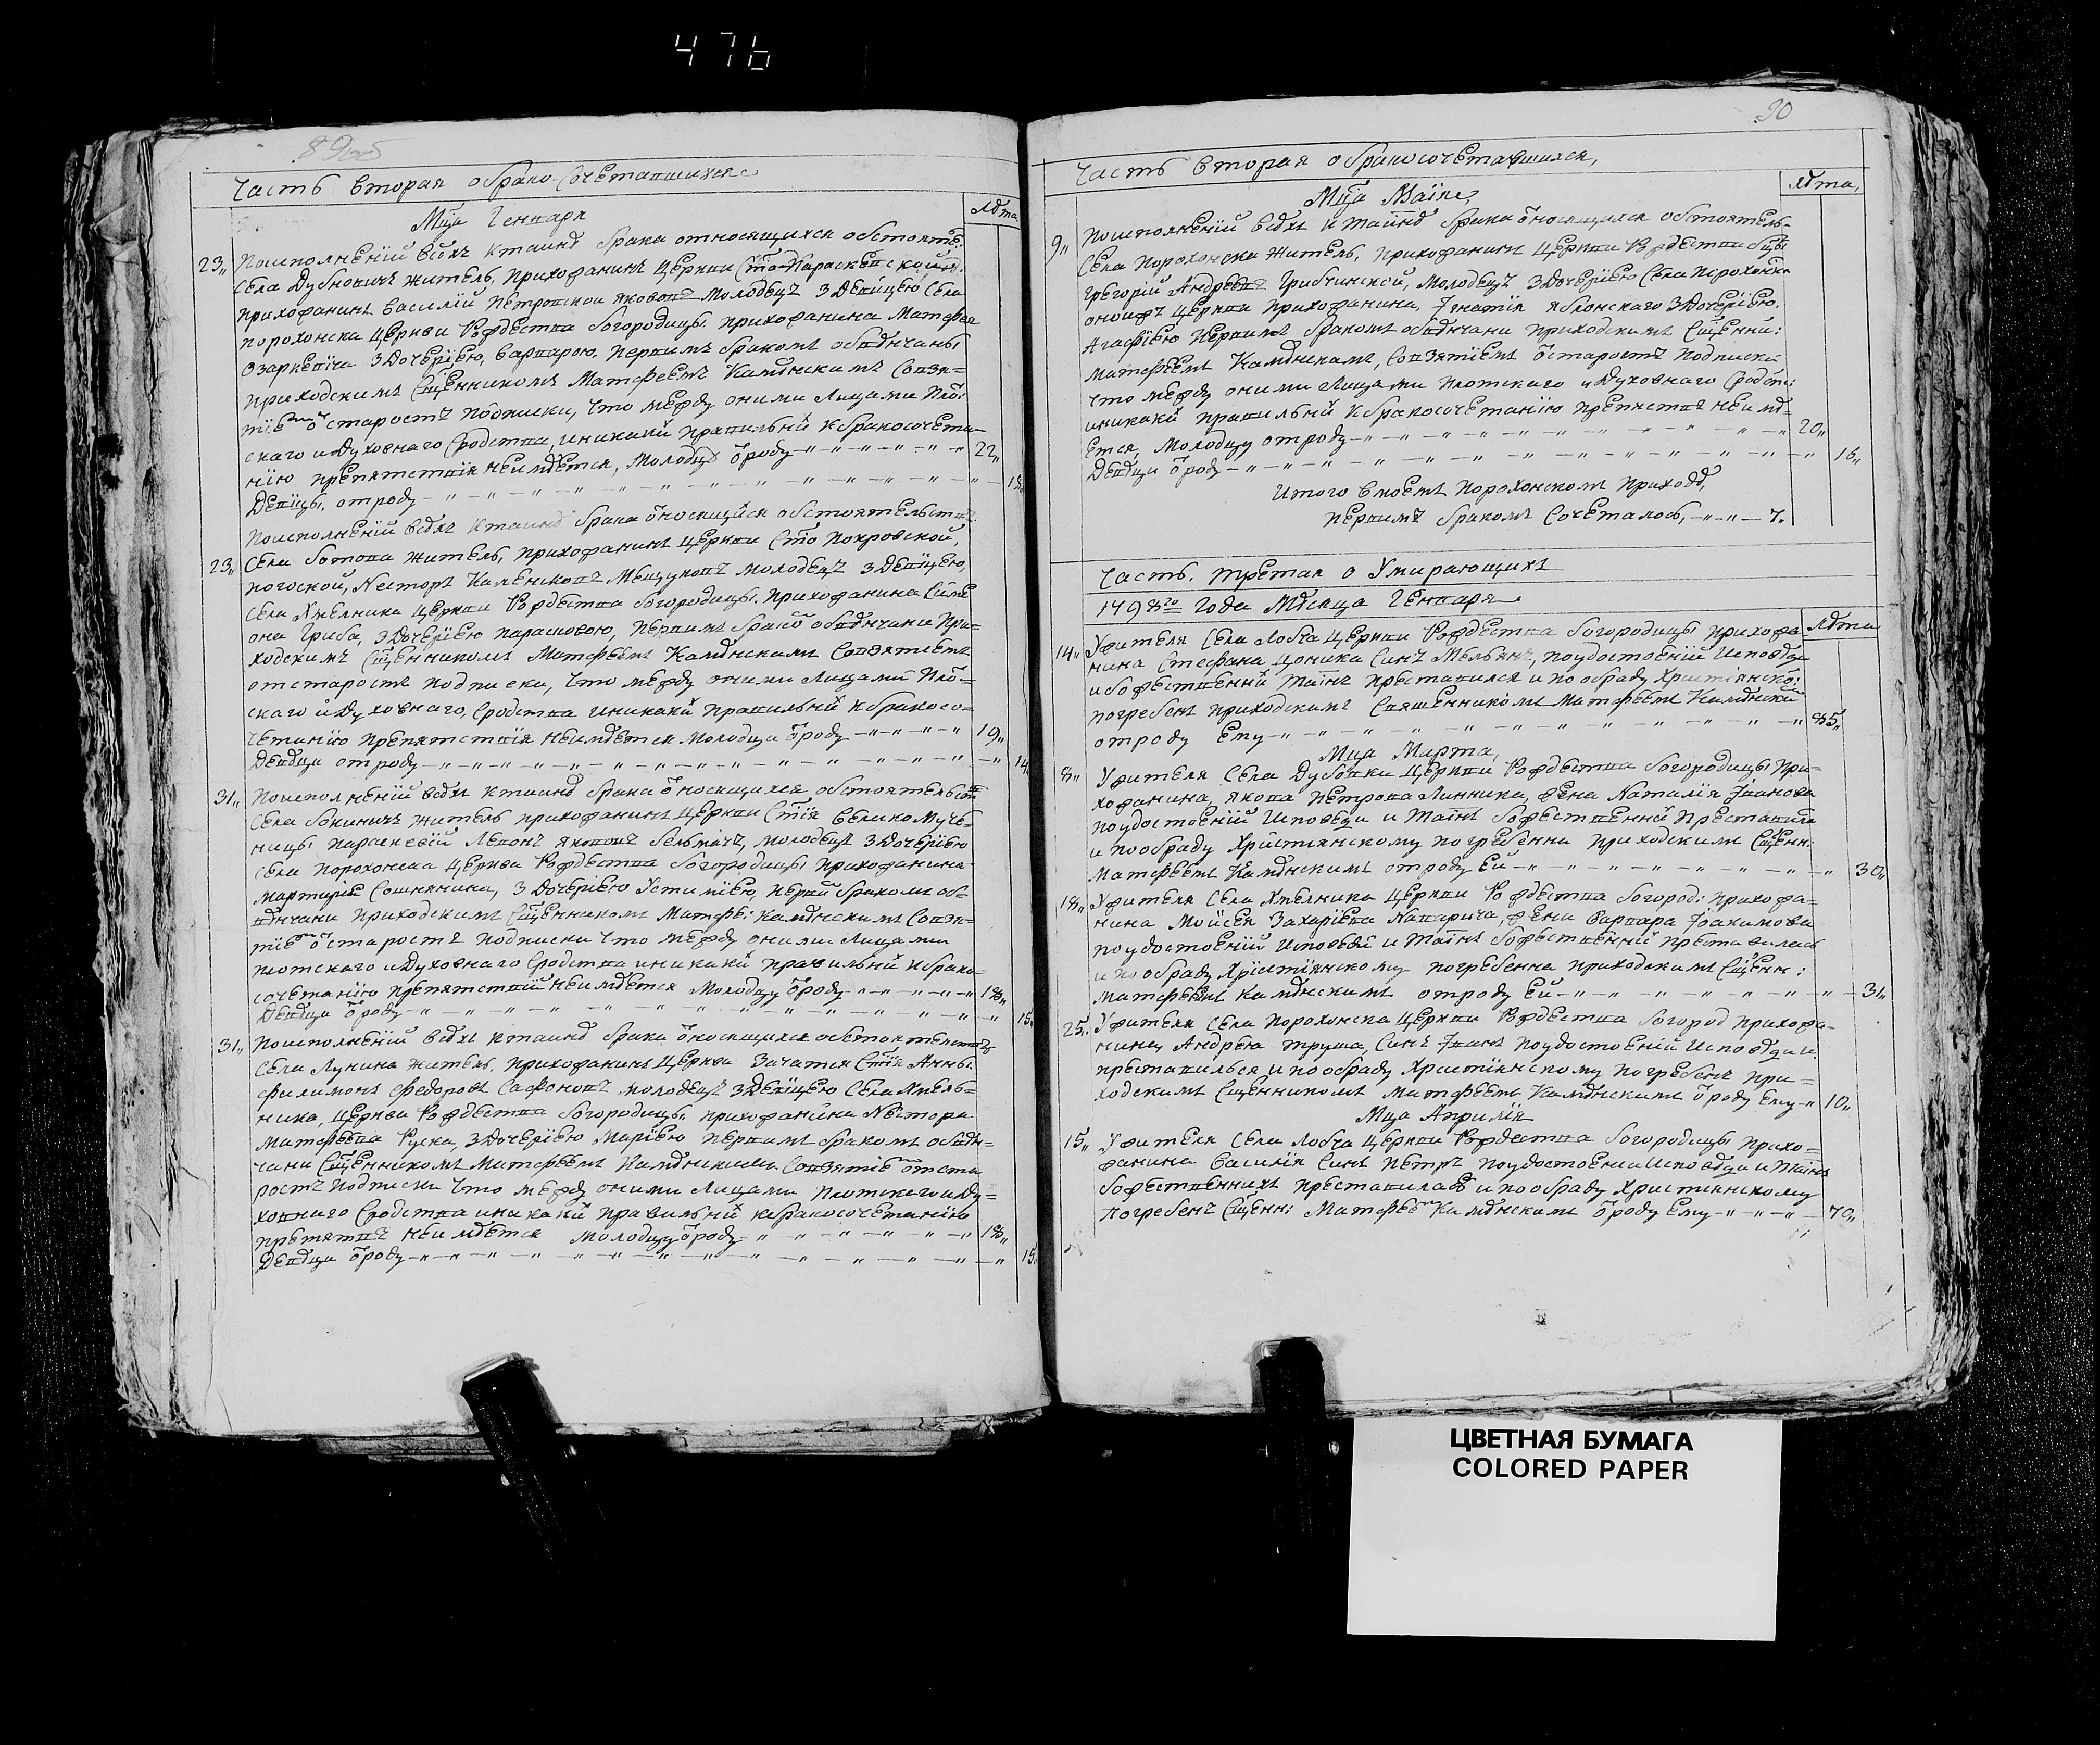 476
89об
Часть вторая о брако-Сочетавшихся
лѣта
Мца Генваря
23„ По исполненіи всѣхъ к таинѣ брака относящихся обстояте:
села Дубновичъ житель, прихожанинъ церкви Сто-Параскевской
прихожанинъ Василій Петровскои Якововъ молодецъ з девицею села
порохонска церкви Рождества богородицы прихожанина Матфея
Озаркевича з дочеріею, варварою, первимъ бракомъ обвѣнчаны
приходскимъ Сщенникомъ Матфеемъ Камѣнскимъ Совзя=
тіемъ о старостъ подписки, что между оними Лицами Пло:
скаго и духовнаго Сродства, и никакй правильнй к бракосочета-
нію препятствія неимѣется, Молодцу ороду 22„
Девицы, отроду 18
По исполненіи всѣхъ к таинѣ брака оносящися обстоятельствъ
23„ Села Ботова житель, прихожанинъ церкви Сто Покровской,
погоской, Nесторъ Каленковъ Мещуковъ молодецъ з девіцею,
села Хмелника церкви Рождества богородицы, прихожанина Симе
она Гриба, з дочеріею парасковою, первимъ брако обвѣнчани При=
ходскимъ Сщенникомъ Матфеемъ Камѣнскимъ Совзятіемъ
от старостъ подписки, что между оними Лицами Пло=
скаго и духовнаго, сродства и никакй правильнй к бракосо=
четанію препятствія неимѣется молодцу ороду 19„
Девѣци отроду 14
31„ По исполненіи всѣхъ к таинѣ брака оносящихся обстоятельств
Села Бокиничъ житель прихожанинъ церкви Стія великомуче=
ницы параскевій Левонъ Яковъ Белмачъ, молодецъ з дочеріею
села порохонска церкви Рождества богородицы прихожанина
мартиріе Сошнянина, з дочеріею Устиніею, первй бракомъ об=
вѣнчани приходскимъ Сщенникомъ Матфе: Камѣнскимъ Совзя=
тіемъ о старостъ подписки что между оними Лицами
плотскаго и духовнаго Сродства и никакй правильнй к брако=
сочетанію препятствій неимѣется молодцу ороду 18„
Девѣци ороду 15
31„ По исполненіи всѣхъ к таинѣ брака оносящихся обстоятелствъ
села Лунина житель, прихожанинъ церкви Зачатія Стія Анны.
Филимонъ Федоровъ Сафоновъ молодецъ з девіцею села Хмель=
ника, церкви Рождества богородицы, прихожанина Nестора
Матфеева Руска, з дочеріею Маріею первимъ бракомъ обвѣн=
чани Сщенникомъ Матфеемъ Камѣнскимъ. Совзятіе от ста
ростъ подписки что между оними Лицами Плотскаго и Ду=
ховного Сродства и никакй правильнй к бракосочетанію
препятвъ неимѣется молодцу ороду 18„
Девѣци ороду 15
90
Часть вторая о бракосочетавшихся,
лѣта,
Мца Маія,
9„ По исполненіи всѣхъ и таинѣ брака оносящихся обстоятель-
Села порохонска житель, прихожанинъ церкви Рождества бцы
Грегорій Андреевъ Грибчинской, молодецъ з дочеріею села порохонка
оноижъ церкви прихожанина, Iгнатія Яблонскаго з дочеріею.
Агафіею первимъ бракомъ обвѣнчани приходскимъ Сщенни:
Матфеемъ Камѣнскамъ, Совзятіемъ о старостъ подписки
что между оними Лицами плотскаго и духовнаго Сродст:
и никакй правильнй к бракосочетанію препятствъ неимѣ-
ется, Молодцу отроду 20„
Девѣци ороду 16„
Итого в моемъ Порохонскомъ приходѣ,
первимъ бракомъ Сочеталось, 7.
Часть, третая о Умирающихъ
1798го Года Мѣсяца Генваря
лѣта
14„ У жителя села Лобча церкви Рождества богородицы прихожа
нина Стефана Цоника Синъ Мельянъ, по удостоеній Исповѣди
и божественнй таинъ преставился и по обраду христіянско:
погребенъ приходскимъ Священнікомъ Матфеемъ Камѣнскй
отроду Ему 85„
Мца Марта,
8„ У жителя села Дубовки церкви Рождества богородицы при=
хожанина, Якова Петрова Линника, жена Nаталія Iванова
по удостоеній Исповеди и Таінъ божественнй преставил
и по обраду Христіянскому погребенна приходскимъ Сщенн:
Матфеемъ Камѣнскимъ отроду Ей 30„
18„ У жителя села Хмелника церкви Рождества богород: прихожа=
нина Мойсея Захаріева Nапарича, жена Варвара Iоакимова
по удостоеніи исповѣди и таінъ божественнй преставилася
и по обраду Хрістіянскому погребенна приходскимъ Сщенн:
Матфеемъ Камѣнскимъ отроду Ей 31„
25„ У жителя села порохонска церкви Рождества богород прихожа=
нинец Андрею труша, Синъ Iванъ по удостоеній исповѣди и
преставилься и по обраду Христіянскому погребенъ при=
ходскимъ Сщенникомъ Матфеемъ Камѣнскимъ ороду Ему 10„
Мца Априлія
15„ У жителя села Лобча церкви Рождества богородицы прихо=
жанина Василія Синъ Петръ по удостоеніи исповѣди и таінъ
божественнихъ преставилась и по обраду христіянскому
погребенъ Сщенн: Матфеемъ Камѣнскимъ ороду Ему 70„
ЦВЕТНАЯ БУМАГА
COLORED PAPER